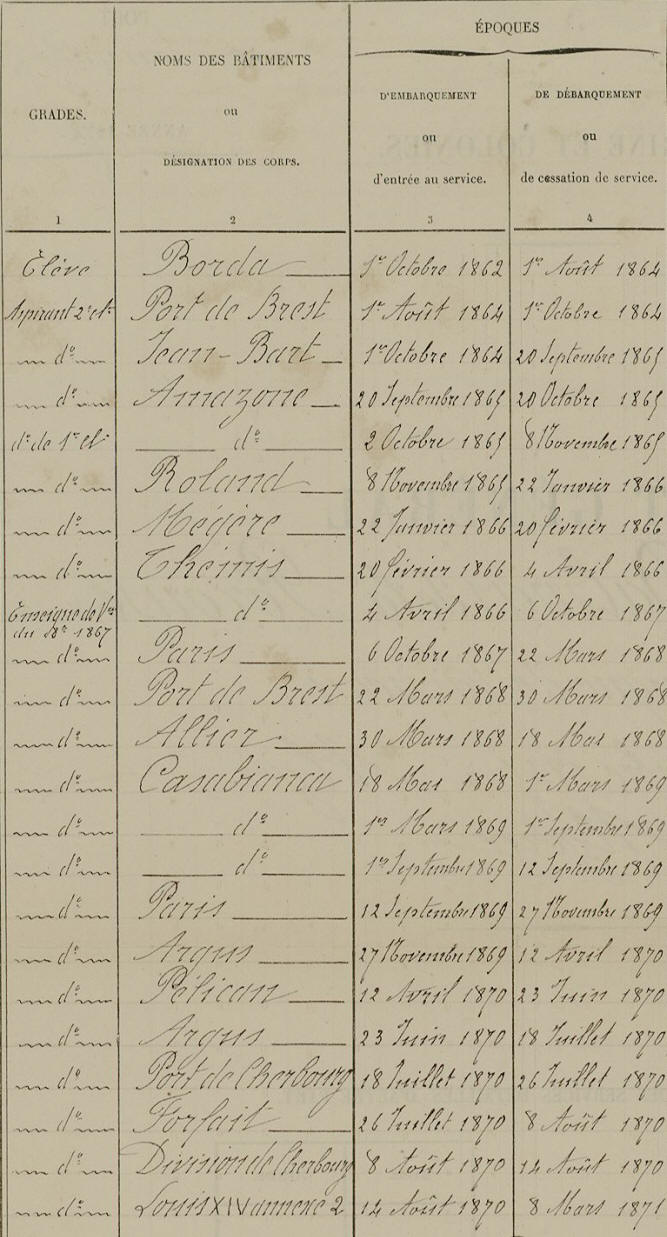 ÉPOQUES
GRADES. NOMS DES BÂTIMENTS ou DÉSIGNATION DES CORPS. D'EMBARQUEMENT ou d'entrée au service. DE DÉBARQUEMENT ou de cessation de service.
1 2 3 4
Élève Borda 1er Octobre 1862 1er Août 1864
Aspirant 2e cl. Port de Brest 1er Août 1864 1er Octobre 1864
do Jean-Bart 1er Octobre 1864 20 Septembre 1865
do Amazone 20 Septembre 1865 20 Octobre 1865
do de 1re cl do 2 Octobre 1865 8 Novembre 1865
do Roland 8 Novembre 1865 22 Janvier 1866
do Mégère 22 Janvier 1866 20 février 1866
do Thémis 20 février 1866 4 Avril 1866
Enseigne de Vau do 4 Avril 1866 6 Octobre 1867
du 1867
do Paris 6 Octobre 1867 22 Mars 1868
do Port de Brest 22 Mars 1868 30 Mars 1868
do Allier 30 Mars 1868 18 Mai 1868
do Casabianca 18 Mai 1868 1er Mars 1869
do do 1er Mars 1869 1er Septembre 1869
do do 1er Septembre 1869 12 Septembre 1869
do Paris 12 Septembre 1869 27 Novembre 1869
do Argus 27 Novembre 1869 12 Avril 1870
do Pélican 12 Avril 1870 23 Juin 1870
do Argus 23 Juin 1870 18 Juillet 1870
do Port de Cherbourg 18 Juillet 1870 26 Juillet 1870
do Forfait 26 Juillet 1870 8 Août 1870
do Division de Cherbourg 8 Août 1870 14 Août 1870
do Louis XIV annexe 2 14 Août 1870 8 Mars 1871